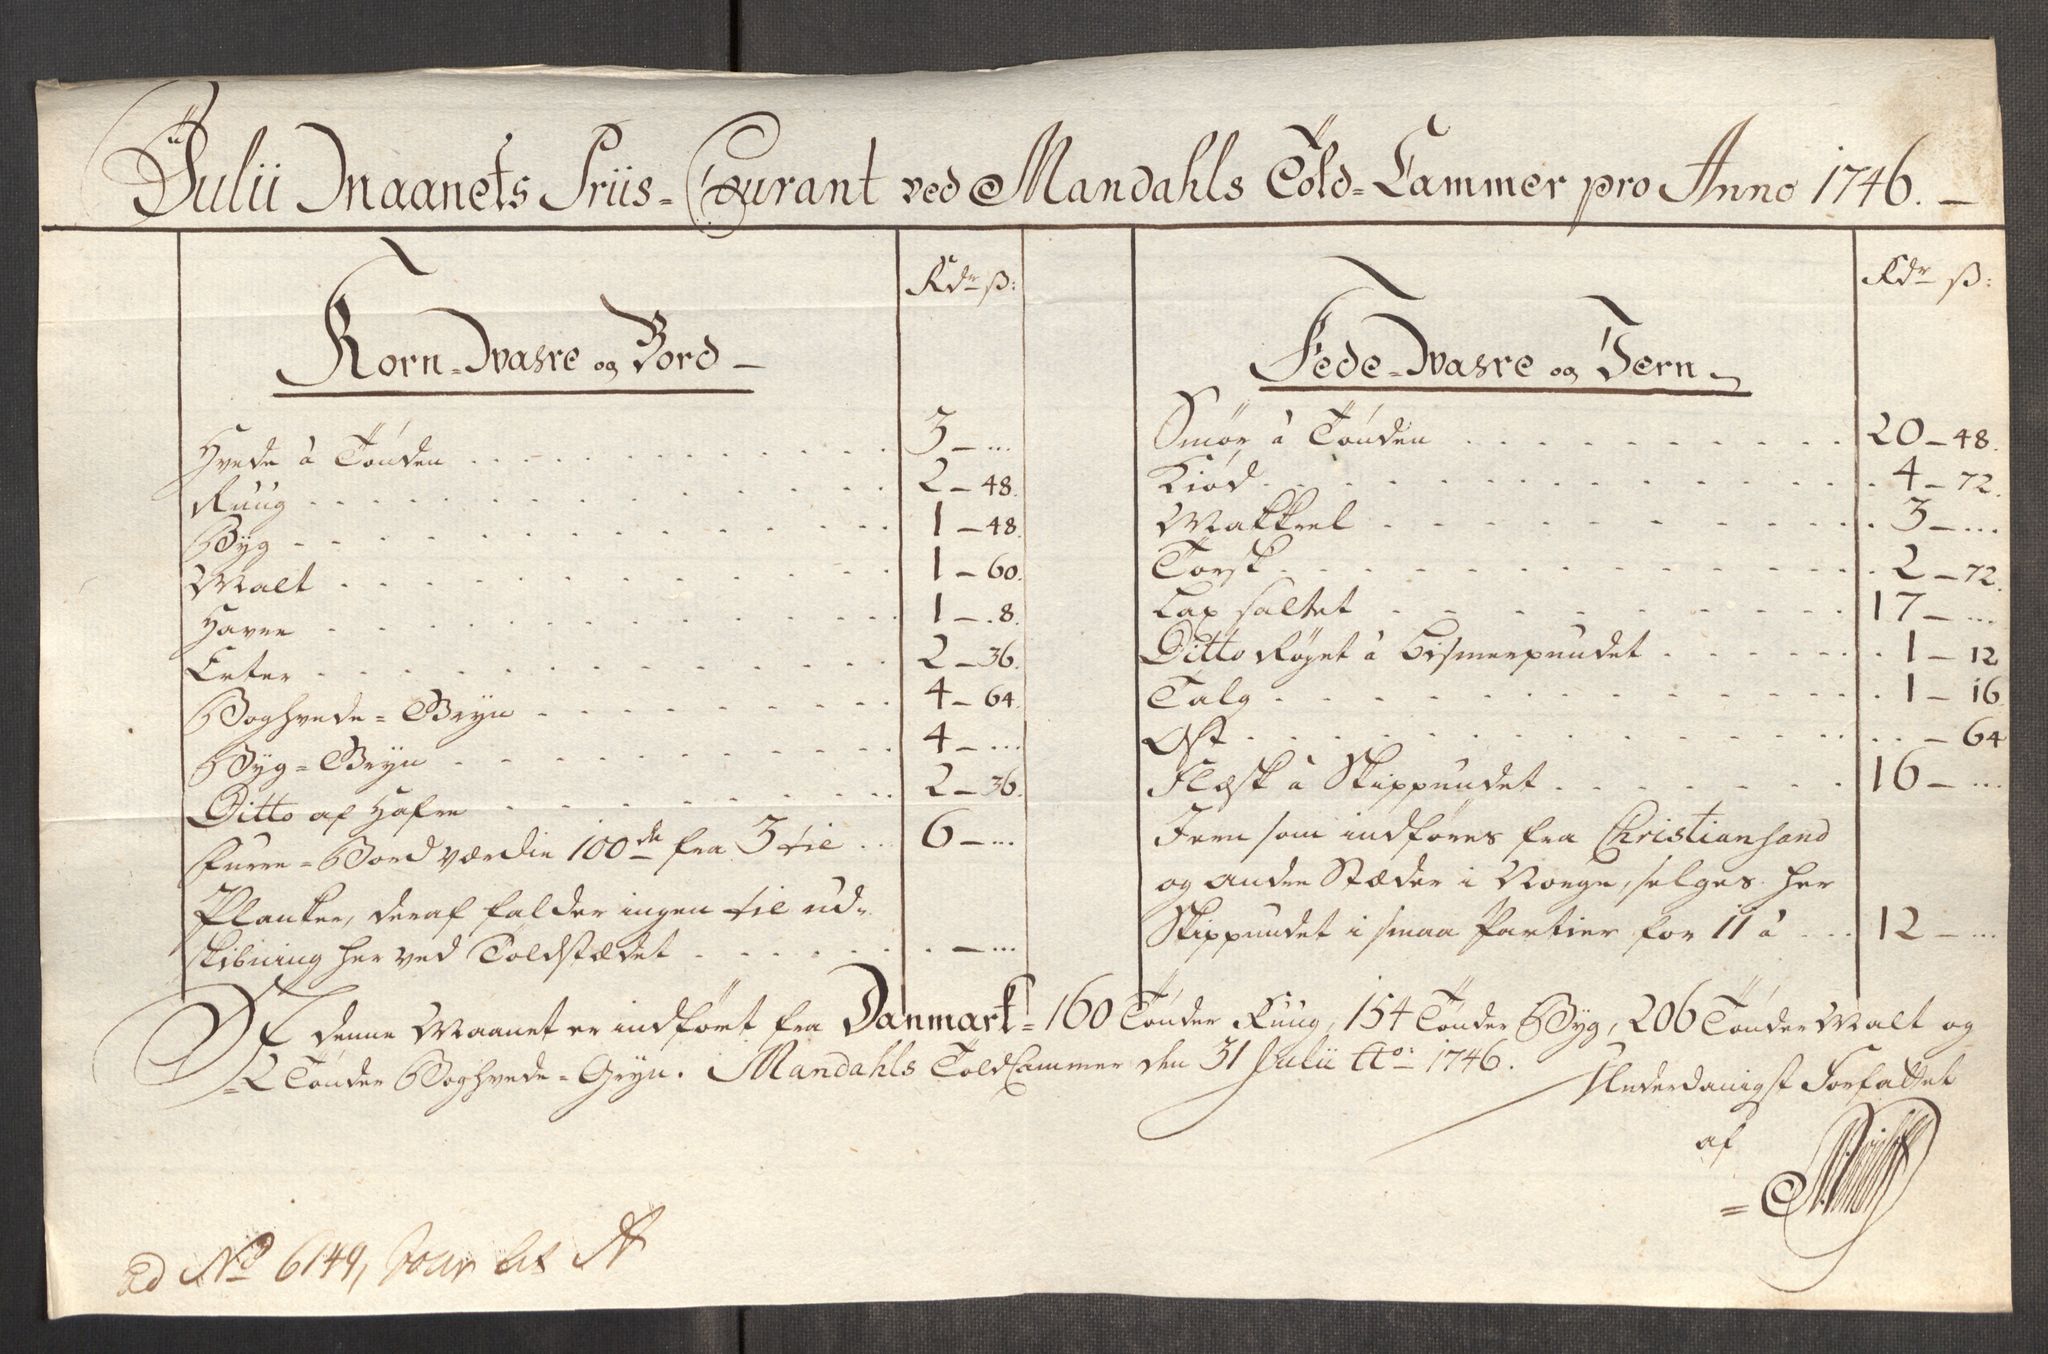 Julii Maanets Priis-Courant ved Mandahls Told-Cammer pro Anno 1746.
Korn-Wahre og Bord
Rdr ß:
Hvede â Tønden 3 - ...
Ruug 2 - 48.
Byg 1 - 48.
Malt 1 - 60.
Havre 1 - .8.
Erter 2 - 36.
Boghvede-Gryn 4 - 64.
Byg-Gryn 4 - ...
Ditto af Hafre 2 - 36.
Furre-Bord værdie 100de fra 3 til 6 - ...
Planker, deraf falder ingen til ud-
skibning her ved Toldstædet . - ...
Fede-Wahre og Jern
Rdr ß:
Smør â Tønden 20 - 48.
Kiød 4 - 72.
Makkrel 3 - ...
Torsk 2 - 72.
Lax saltet 17 - ...
Ditto Røget â Bismerpundet 1 - 12
Talg 1 - 16
Ost . - 64
Flæsk â Skippundet 16 - ...
Jern som indføres fra Christiansand
og andre Stæder i Norge, selges her
Skippundet i smaa Partier for 11 â 12 - ...
I denne Maanet er indført fra Danmark = 160 Tønder Ruug, 154 Tønder Byg, 206 Tønder Malt og
2 Tønder Boghvede-Gryn. Mandahls ToldCammer den 31 Julii Ao: 1746.
Underdanigst Forfattet
af
ad No 6149,